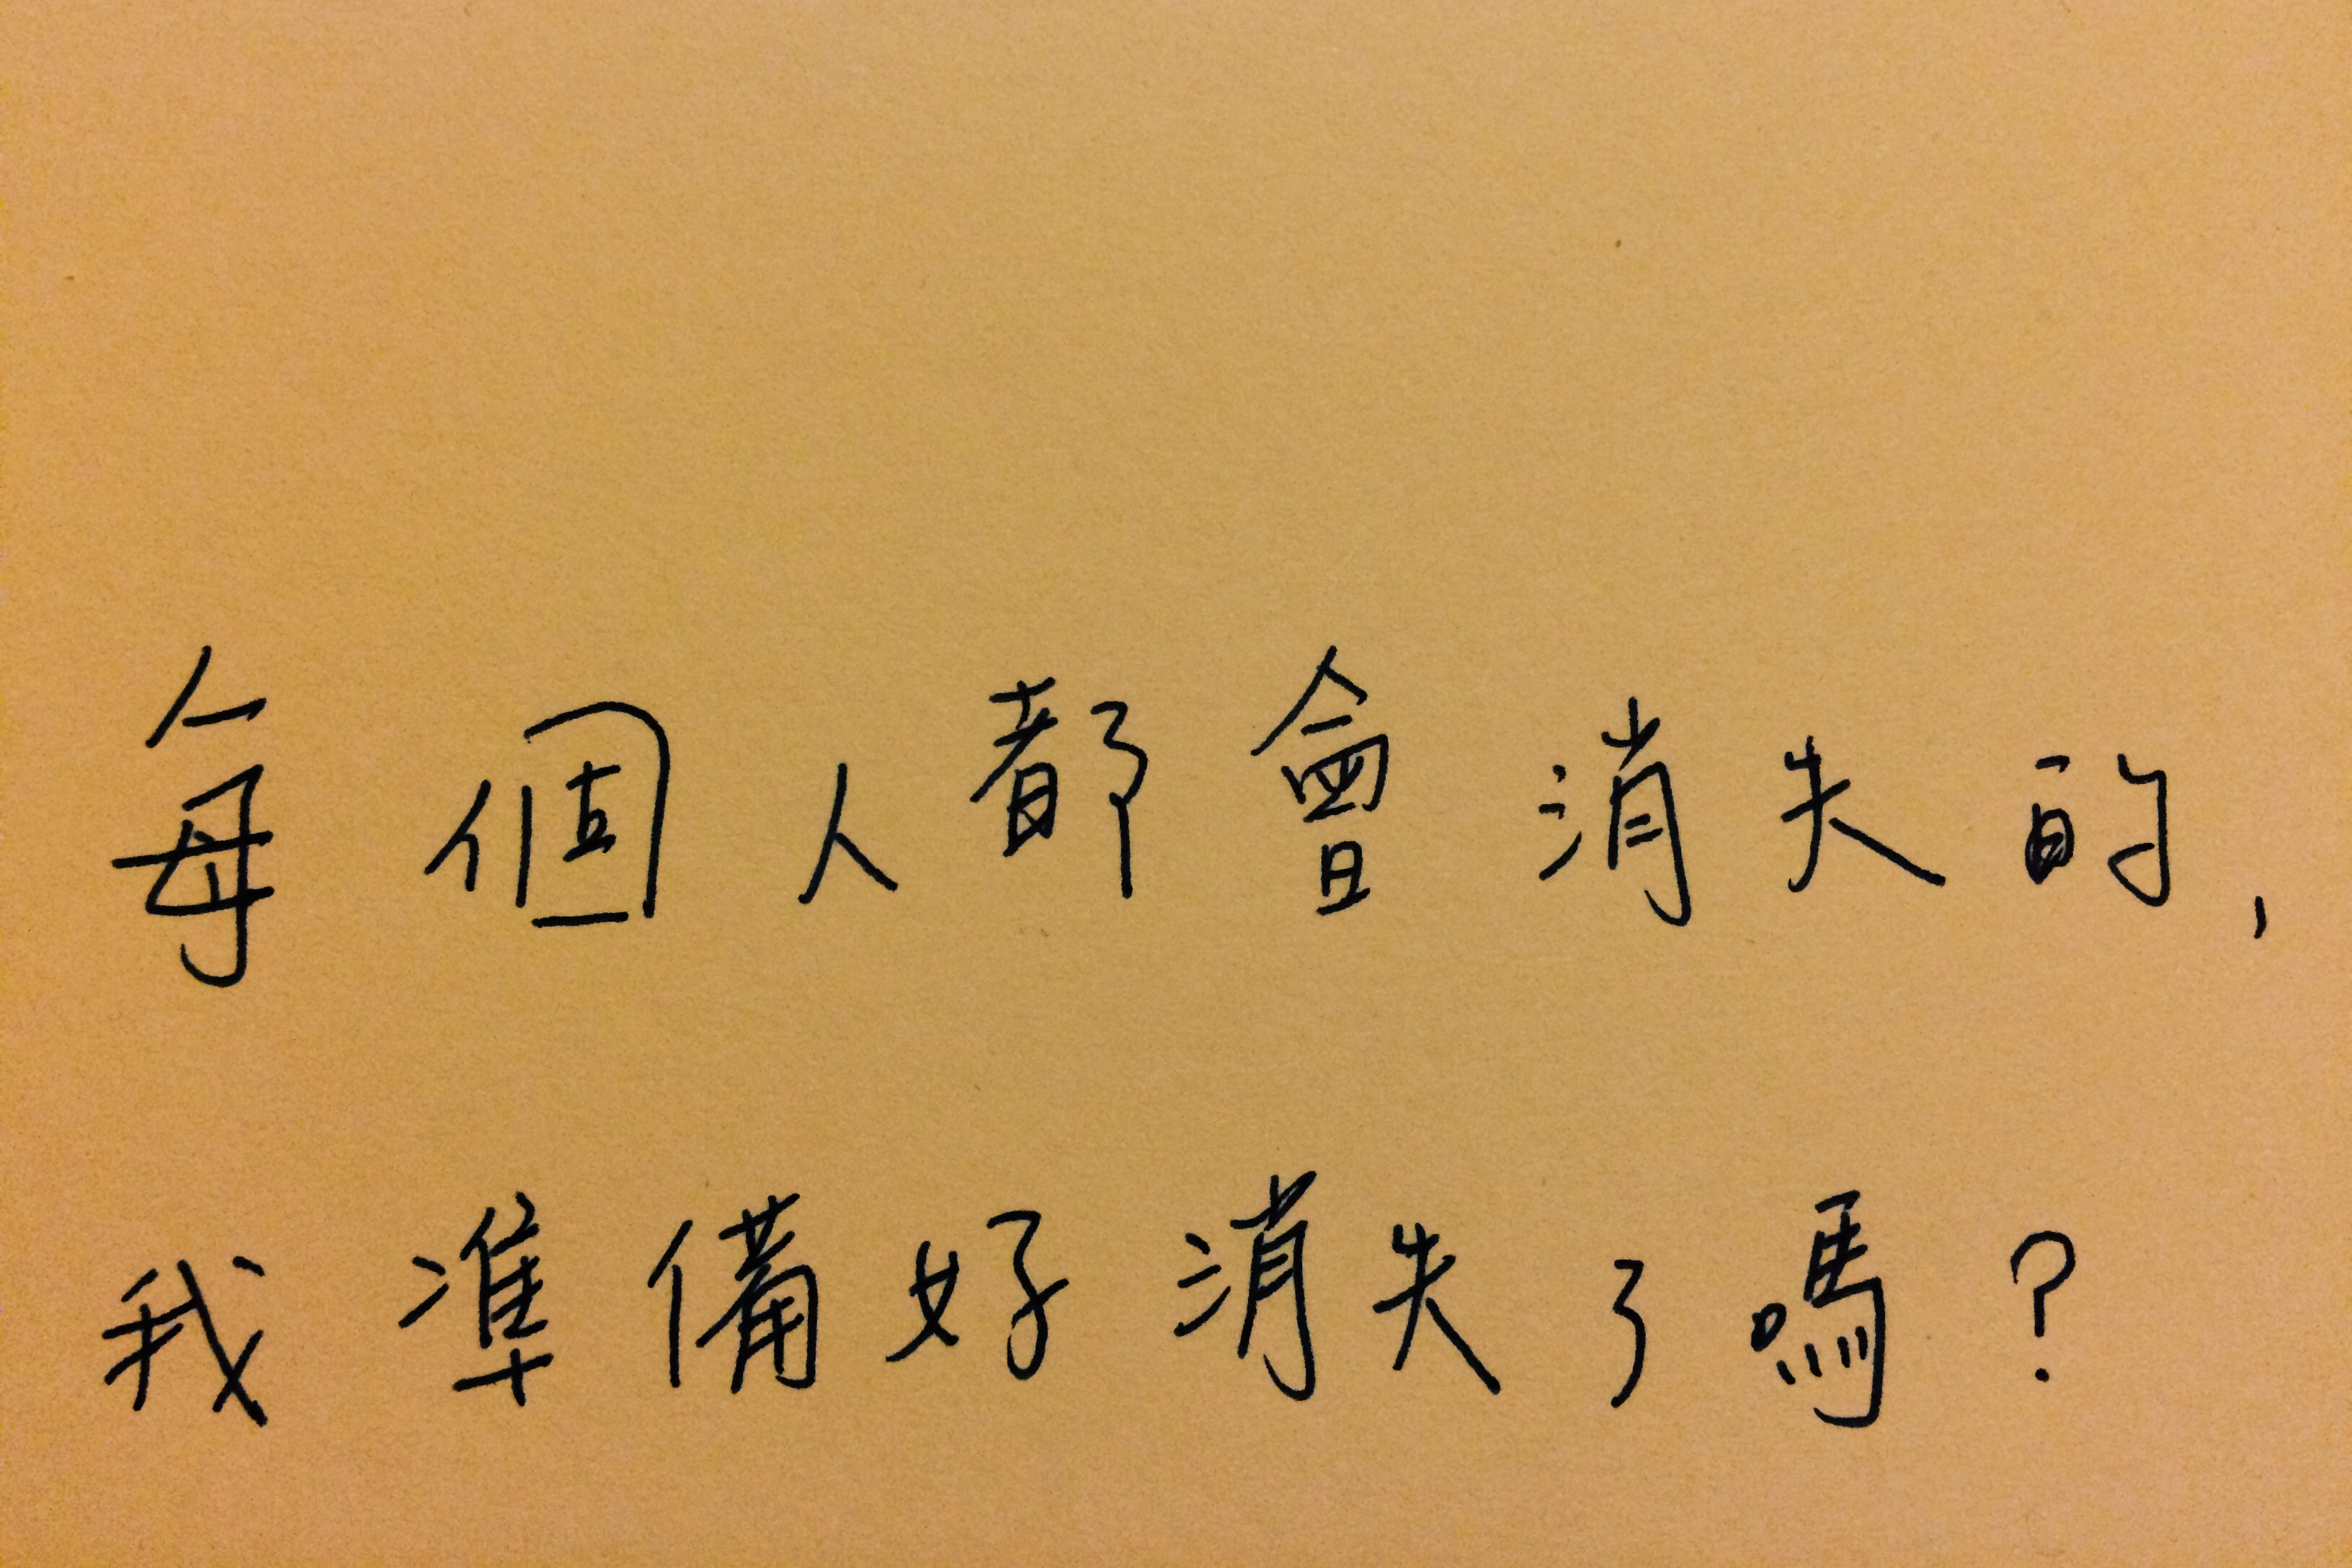 每個人都會消失的,
我準備好消失了嗎?